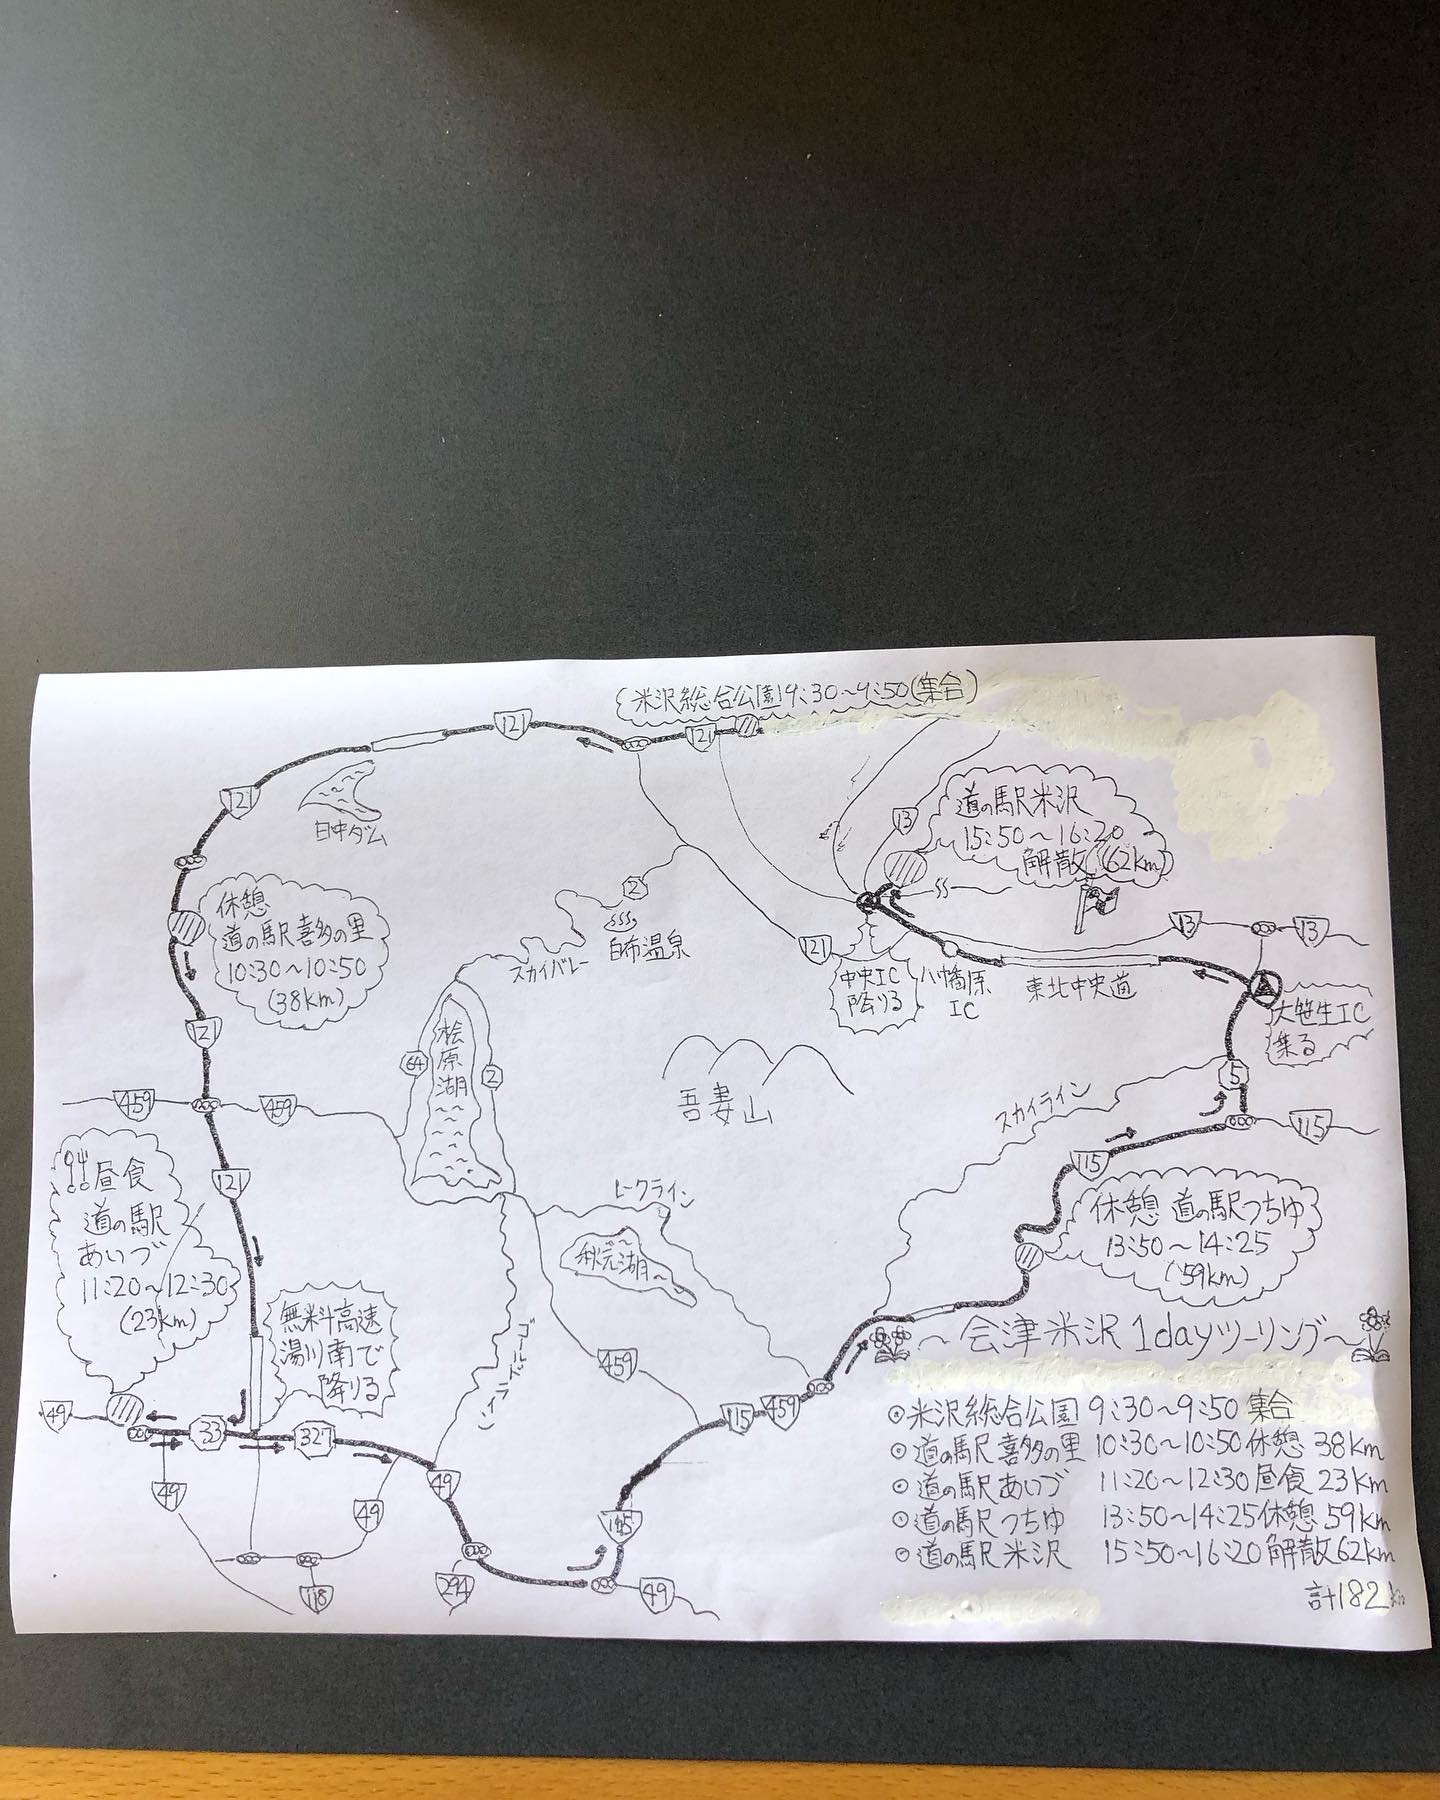 米沢総合公園9:30～9:50(集合)
121
121
121
日中ダム
13
道の駅米沢
15:50～16:20
解散(62km)
休憩
道の駅喜多の里
10:30～10:50
(38km)
2
白布温泉
スカイバレー
121
中央IC
降りる
八幡原
IC
東北中央道
13
13
大笹生IC
乗る
121
64
桧原湖
2
吾妻山
スカイライン
5
459
459
115
115
昼食
道の駅
あいづ
11:20～12:30
(23km)
121
レークライン
秋元湖
休憩 道の駅つちゆ
13:50～14:25
(59km)
無料高速
湯川南で
降りる
ゴールドライン
459
～会津米沢1dayツーリング～
49
33
327
49
115
459
◎米沢総合公園 9:30～9:50 集合
◎道の駅喜多の里 10:30～10:50 休憩 38km
◎道の駅あいづ 11:20～12:30 昼食 23km
◎道の駅つちゆ 13:50～14:25 休憩 59km
◎道の駅米沢 15:50～16:20 解散 62km
計182km
49
49
115
118
294
49